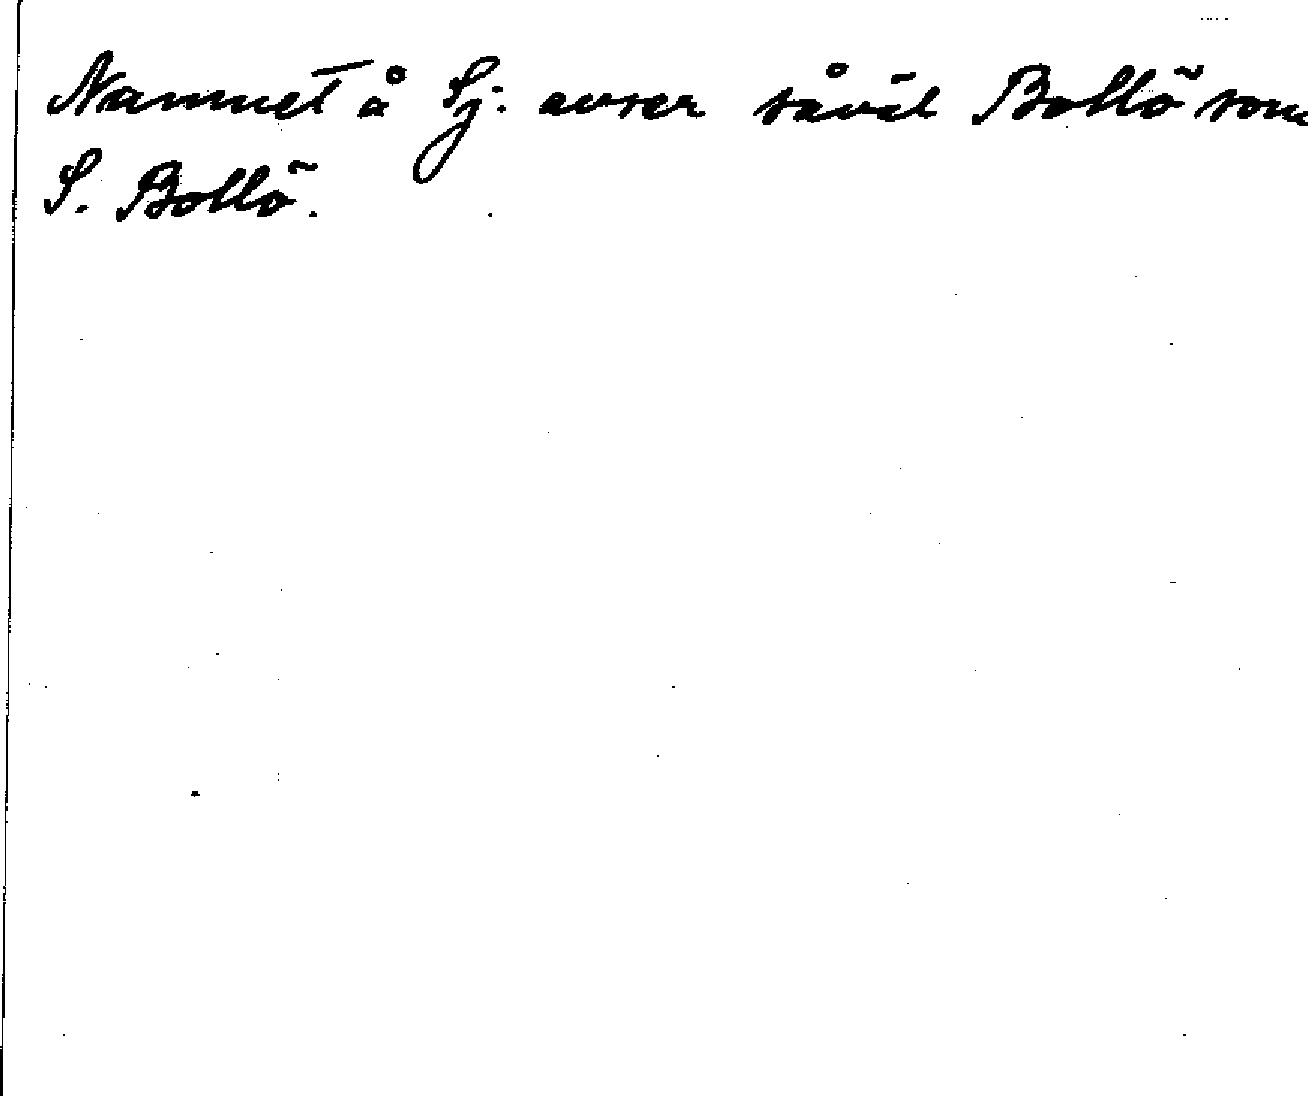 Namnet å Sj: avser såväl Bollö som
S. Bollö.